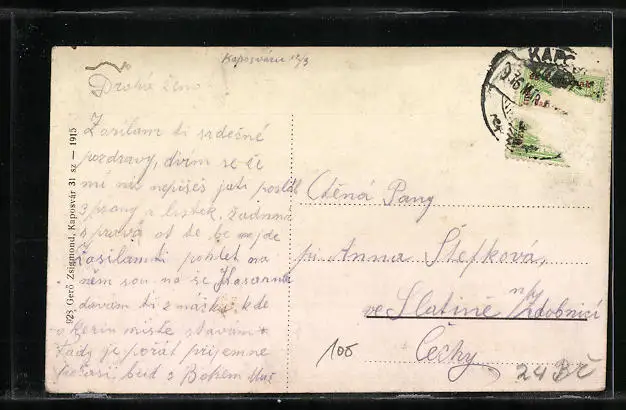 Kaposváru 12/3
Drahá ženo
Zasílam ti srdečné
pozdravy, divím se že
mi nic nepíšeš jak
psaný a lístek, žádnná
zpráva od te be nejde
Zasílám ti pohled na
něm sou na še Kasarna
dávám ti značku kde
v kerim místě stavám
Tady je pořát příjemne
počasí buď s Bohem Muč
928 Gerő Zsigmond, Kaposvár 31 sz — 1915
KAPOSVÁR
Ctěná Pany
pí Anna Štefková,
ve Slatině n/Zdobnicí
Čechy
100
24 Bč